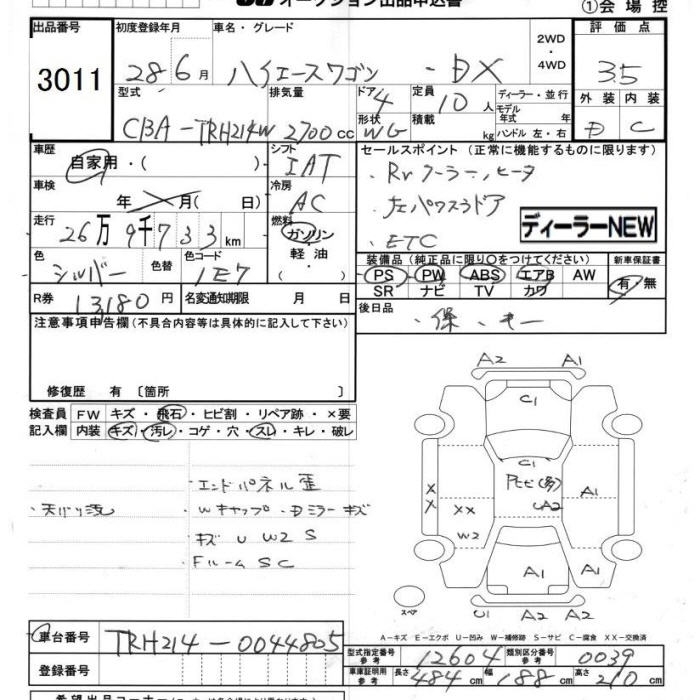 オークション出品申込書
①会場控
出品番号 初度登録年月 車名・グレード 2WD・4WD 評価点
3011 28 6月 ハイエースワゴン ・DX 3.5
型式 排気量 ドア 4 定員 10人 ディーラー・並行 外装 内装
CBA-TRH214W 2700cc 形状 WG 積載 kg モデル年式 年 ハンドル 左・右 D C
車歴 シフト セールスポイント (正常に機能するものに限ります)
自家用・( ) IAT ・Rrクーラー、ヒータ
車検 年 月( 日) 冷房 AC ・左パワスラドア
走行 26万9千733km 燃料 ガソリン・軽油・ ・ETC ディーラーNEW
色 シルバー 色替 色コード 1E7 装備品 (純正品に限り○をつけてください) 新車保証書
PS PW ABS エアB AW 有・無
SR ナビ TV カワ
R券 13180円 名変通知期限 月 日 後日品
・保、キー
注意事項申告欄(不具合内容等は具体的に記入して下さい)
修復歴 有 〔箇所 〕
検査員 FW キズ・飛石・ヒビ割・リペア跡・×要
記入欄 内装 キズ・汚レ・コゲ・穴・スレ・キレ・破レ
・エンドパネル歪
・天バリ浅 ・Wキャップ・Dミラーキズ
・キズ U W2 S
・Fルーム SC
A2 A1
C1
C1
A1
X
X
XX
W2
A1 A1
スペア
U1 A2 A2
A-キズ E-エクボ U-凹み W-補修跡 S-サビ C-腐食 XX-交換済
車台番号 TRH214-0044805
登録番号
型式指定番号 参考 12604 類別区分番号 参考 0039
車庫証明用 参考 長さ 484cm 幅 188cm 高さ 210cm